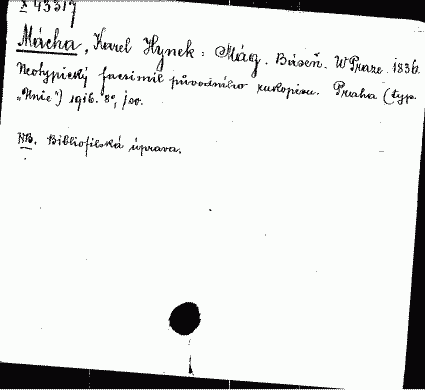 Z 43317
Mácha, Karel Hynek: Máj. Báseň. W Praze. 1836.
Neotypický facsimil původního rukopisu. Praha (typ.
„Unie") 1916. 8°, 100.
NB. Bibliofilská úprava.